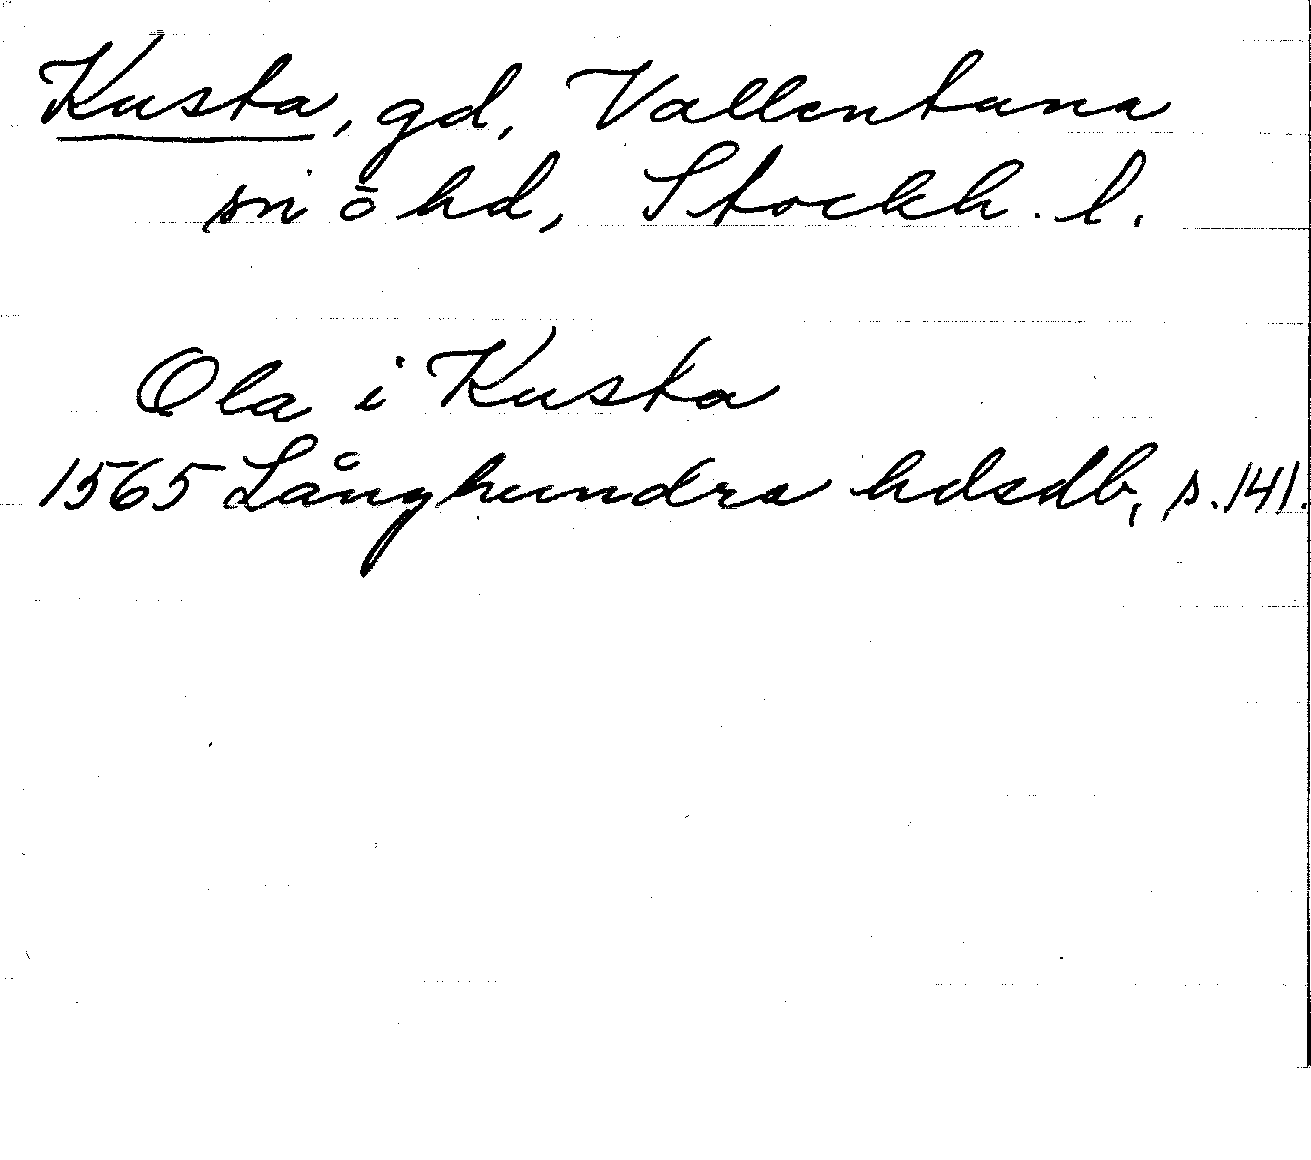 Kusta, gd, Vallentuna
sn ō hd, Stockh. l.
Ola i Kusta
1565 Långhundra hdsdb, s. 141.